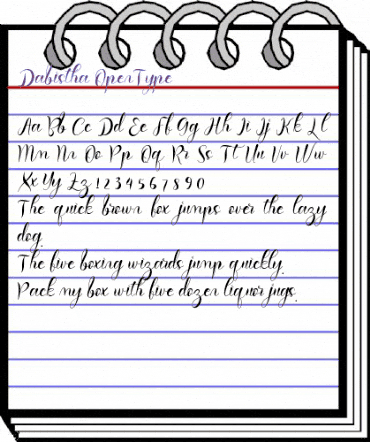 Dabistha OpenType
Aa Bb Cc Dd Ee Ff Gg Hh Ii Jj Kk Ll
Mm Nn Oo Pp Qq Rr Ss Tt Uu Vv Ww
Xx Yy Zz 1 2 3 4 5 6 7 8 9 0
The quick brown fox jumps over the lazy
dog.
The five boxing wizards jump quickly.
Pack my box with five dozen liquor jugs.